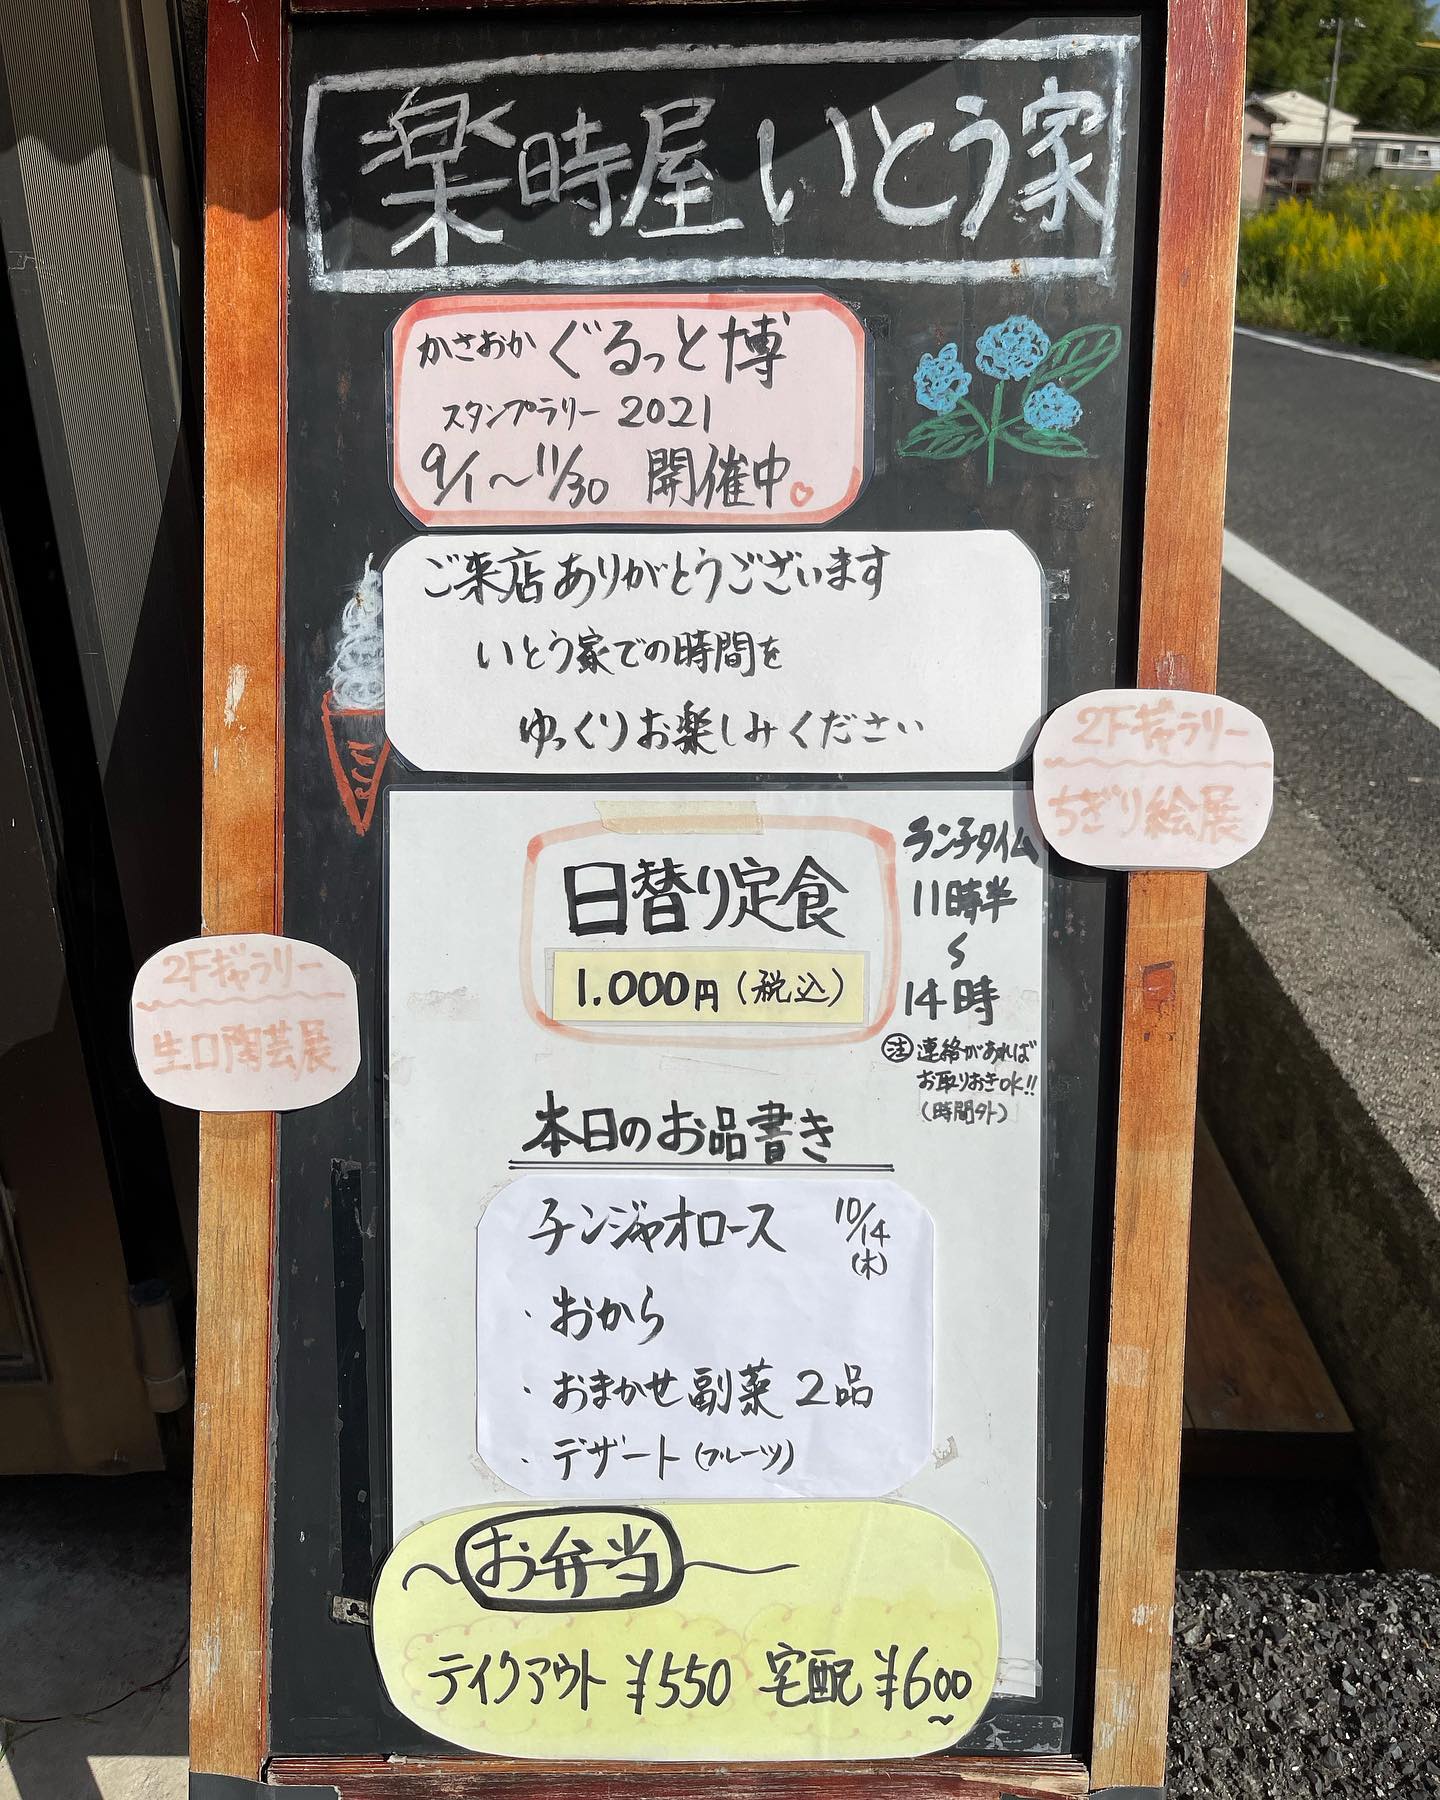 楽時屋 いとう家
かさおか ぐるっと博
スタンプラリー 2021
9/1〜11/30 開催中
ご来店ありがとうございます
いとう家での時間を
ゆっくりお楽しみください
2Fギャラリー
ちぎり絵展
日替り定食
1.000円(税込)
ランチタイム
11時半
〜
14時
注 連絡があれば
お取りおきOK!!
(時間外)
2Fギャラリー
生口陶芸展
本日のお品書き
チンジャオロース 10/14
(木)
・おから
・おまかせ副菜 2品
・デザート(フルーツ)
〜お弁当〜
テイクアウト ¥550 宅配 ¥600
〜